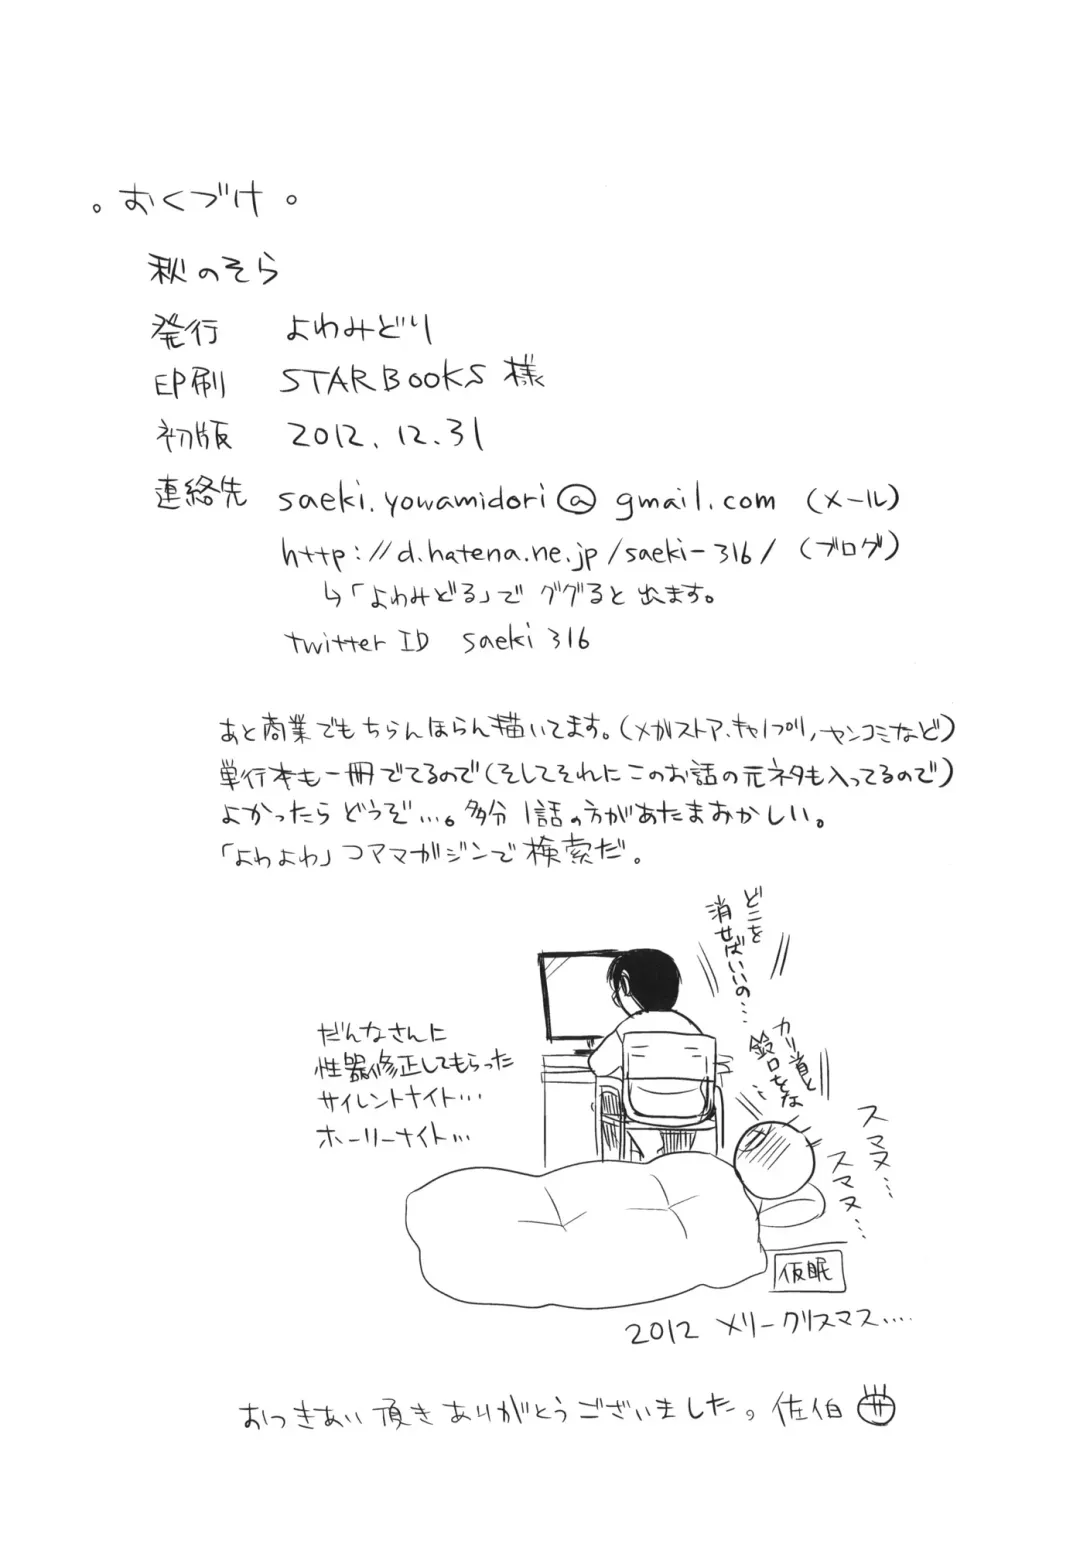 。おくづけ。
秋のそら
発行 よわみどり
印刷 STARBOOKS 様
初版 2012.12.31
連絡先 saeki.yowamidori@gmail.com (メール)
http://d.hatena.ne.jp/saeki-316/ (ブログ)
↳「よわみどる」で ググると 出ます。
twitter ID saeki316
あと商業でもちらんほらん描いてます。(メガストア、キャノプリ、ヤンコミなど)
単行本も一冊でてるので(そしてそれにこのお話の元ネタも入ってるので)
よかったら どうぞ…。多分 1話の方があたまおかしい。
「よわよわ」コアマガジンで検索だ。
どこを
消せばいいの…
カリ首と
鈴口をな
だんなさんに
性器修正してもらった
サイレントナイト…
ホーリーナイト…
スマヌ…
スマヌ…
仮眠
2012 メリークリスマス….
おつきあい頂きありがとうございました。佐伯